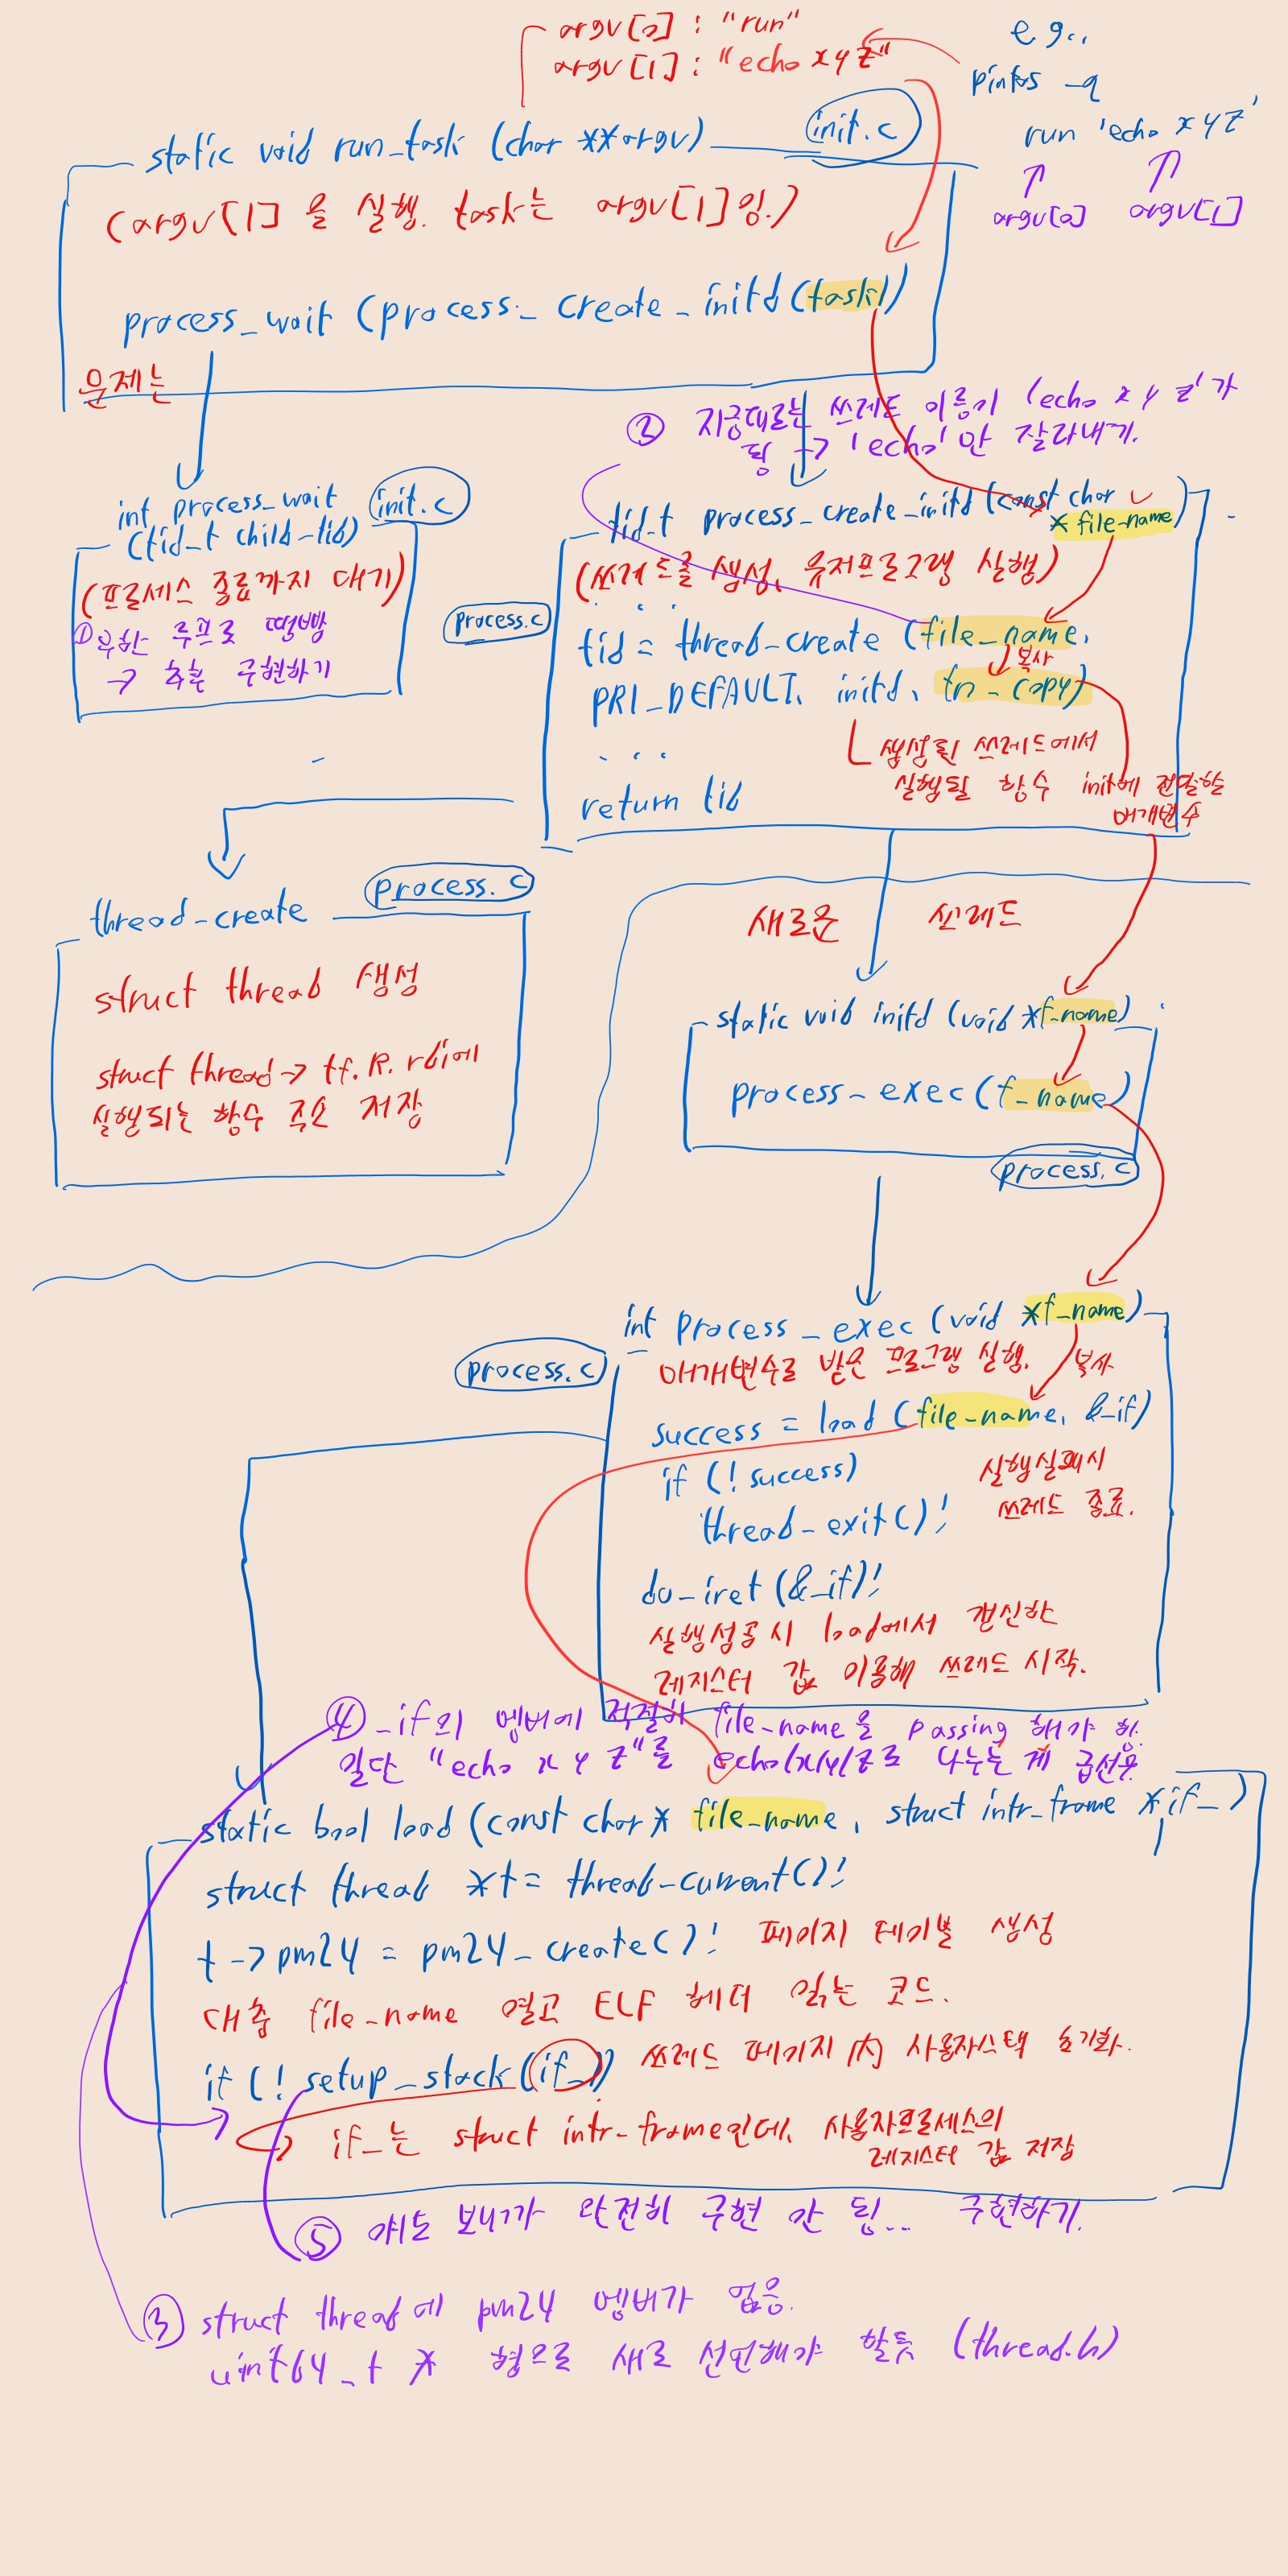 argv[0] : "run"
argv[1] : "echo x y z"
e.g..
pintos -q
run 'echo x y z'
argv[0] argv[1]
init.c
static void run_task (char **argv)
(argv[1] 을 실행. task는 argv[1]임.)
process_wait (process_create_initd (task))
문제는
② 지금대로는 쓰레드 이름이 'echo x y z'가
됨 → 'echo'만 잘라내기.
int process_wait
(tid_t child_tid)
init.c
(프로세스 종료까지 대기)
① 무한 루프로 땜빵
→ 추후 구현하기
tid_t process_create_initd (const char
* file_name)
(쓰레드를 생성, 유저프로그램 실행)
process.c
. . .
tid = thread_create (file_name,
복사
PRI_DEFAULT, initd, fn_copy)
생성된 쓰레드에서
실행될 함수 init에 전달할
매개변수
. . .
return tid
process.c
thread_create
struct thread 생성
struct thread → tf.R.rdi에
실행되는 함수 주소 저장
새로운 쓰레드
static void initd (void *f_name)
process_exec (f_name)
process.c
int process_exec (void *f_name)
process.c
매개변수로 받은 프로그램 실행.
복사
success = load (file_name, &_if)
if (! success)
thread_exit();
실행실패시
쓰레드 종료.
do_iret (&_if);
실행성공시 load에서 갱신한
레지스터 값 이용해 쓰레드 시작.
④ _if의 멤버에 적절히 file_name을 passing 해야 함.
일단 "echo x y z"를 echo/x/y/z로 나누는 게 급선무.
static bool load (const char* file_name, struct intr_frame *if_)
struct thread *t = thread_current();
t->pml4 = pml4_create(); 페이지 테이블 생성
대충 file_name 열고 ELF 헤더 읽는 코드.
if (! setup_stack (if_)) 쓰레드 페이지 內 사용자스택 초기화.
if_는 struct intr_frame인데, 사용자프로세스의
레지스터 값 저장
⑤ 얘는 보니까 완전히 구현 안 됨... 구현하기.
③ struct thread에 pml4 멤버가 없음.
uint64_t * 형으로 새로 선언해야 할듯 (thread.h)